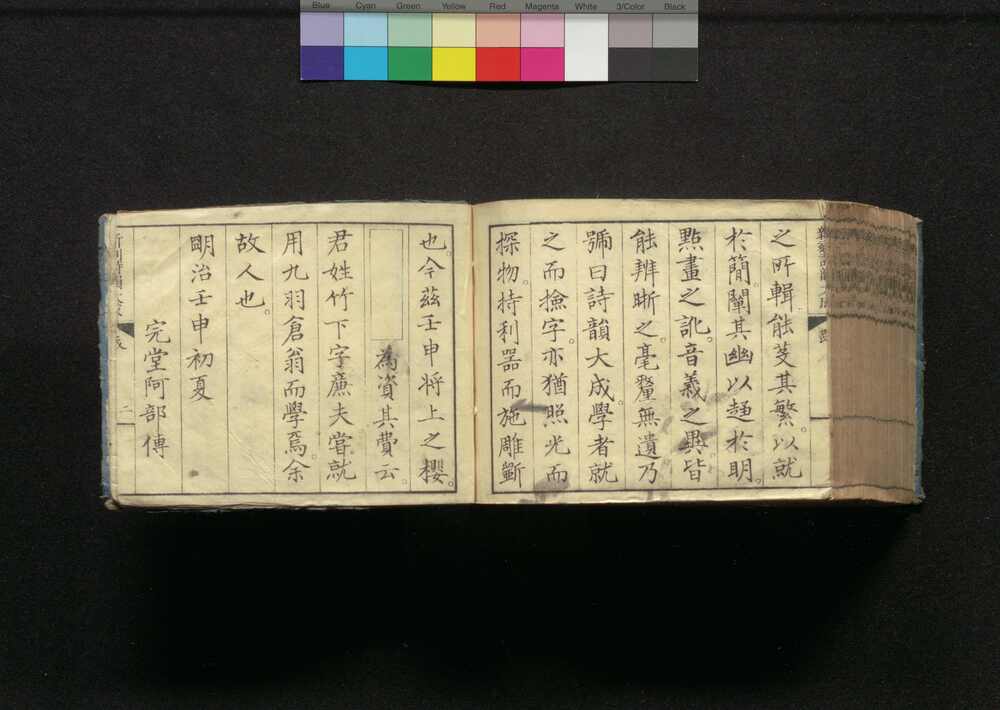 Blue Cyan Green Yellow Red Magenta White 3/Color Black
之所輯能芟其繁。以就
於簡。闡其幽以趨於明。
點畫之訛。音義之異。皆
能辨晰之。毫釐無遺乃
號曰詩韻大成。學者就
之而撿字。亦猶照光而
探物。持利器而施雕斵
也。今茲壬申将上之櫻。
為資其費云。
君姓竹下字廉夫嘗就
用九羽倉翁而學焉。余
故人也。
明治壬申初夏
完堂阿部傳
二